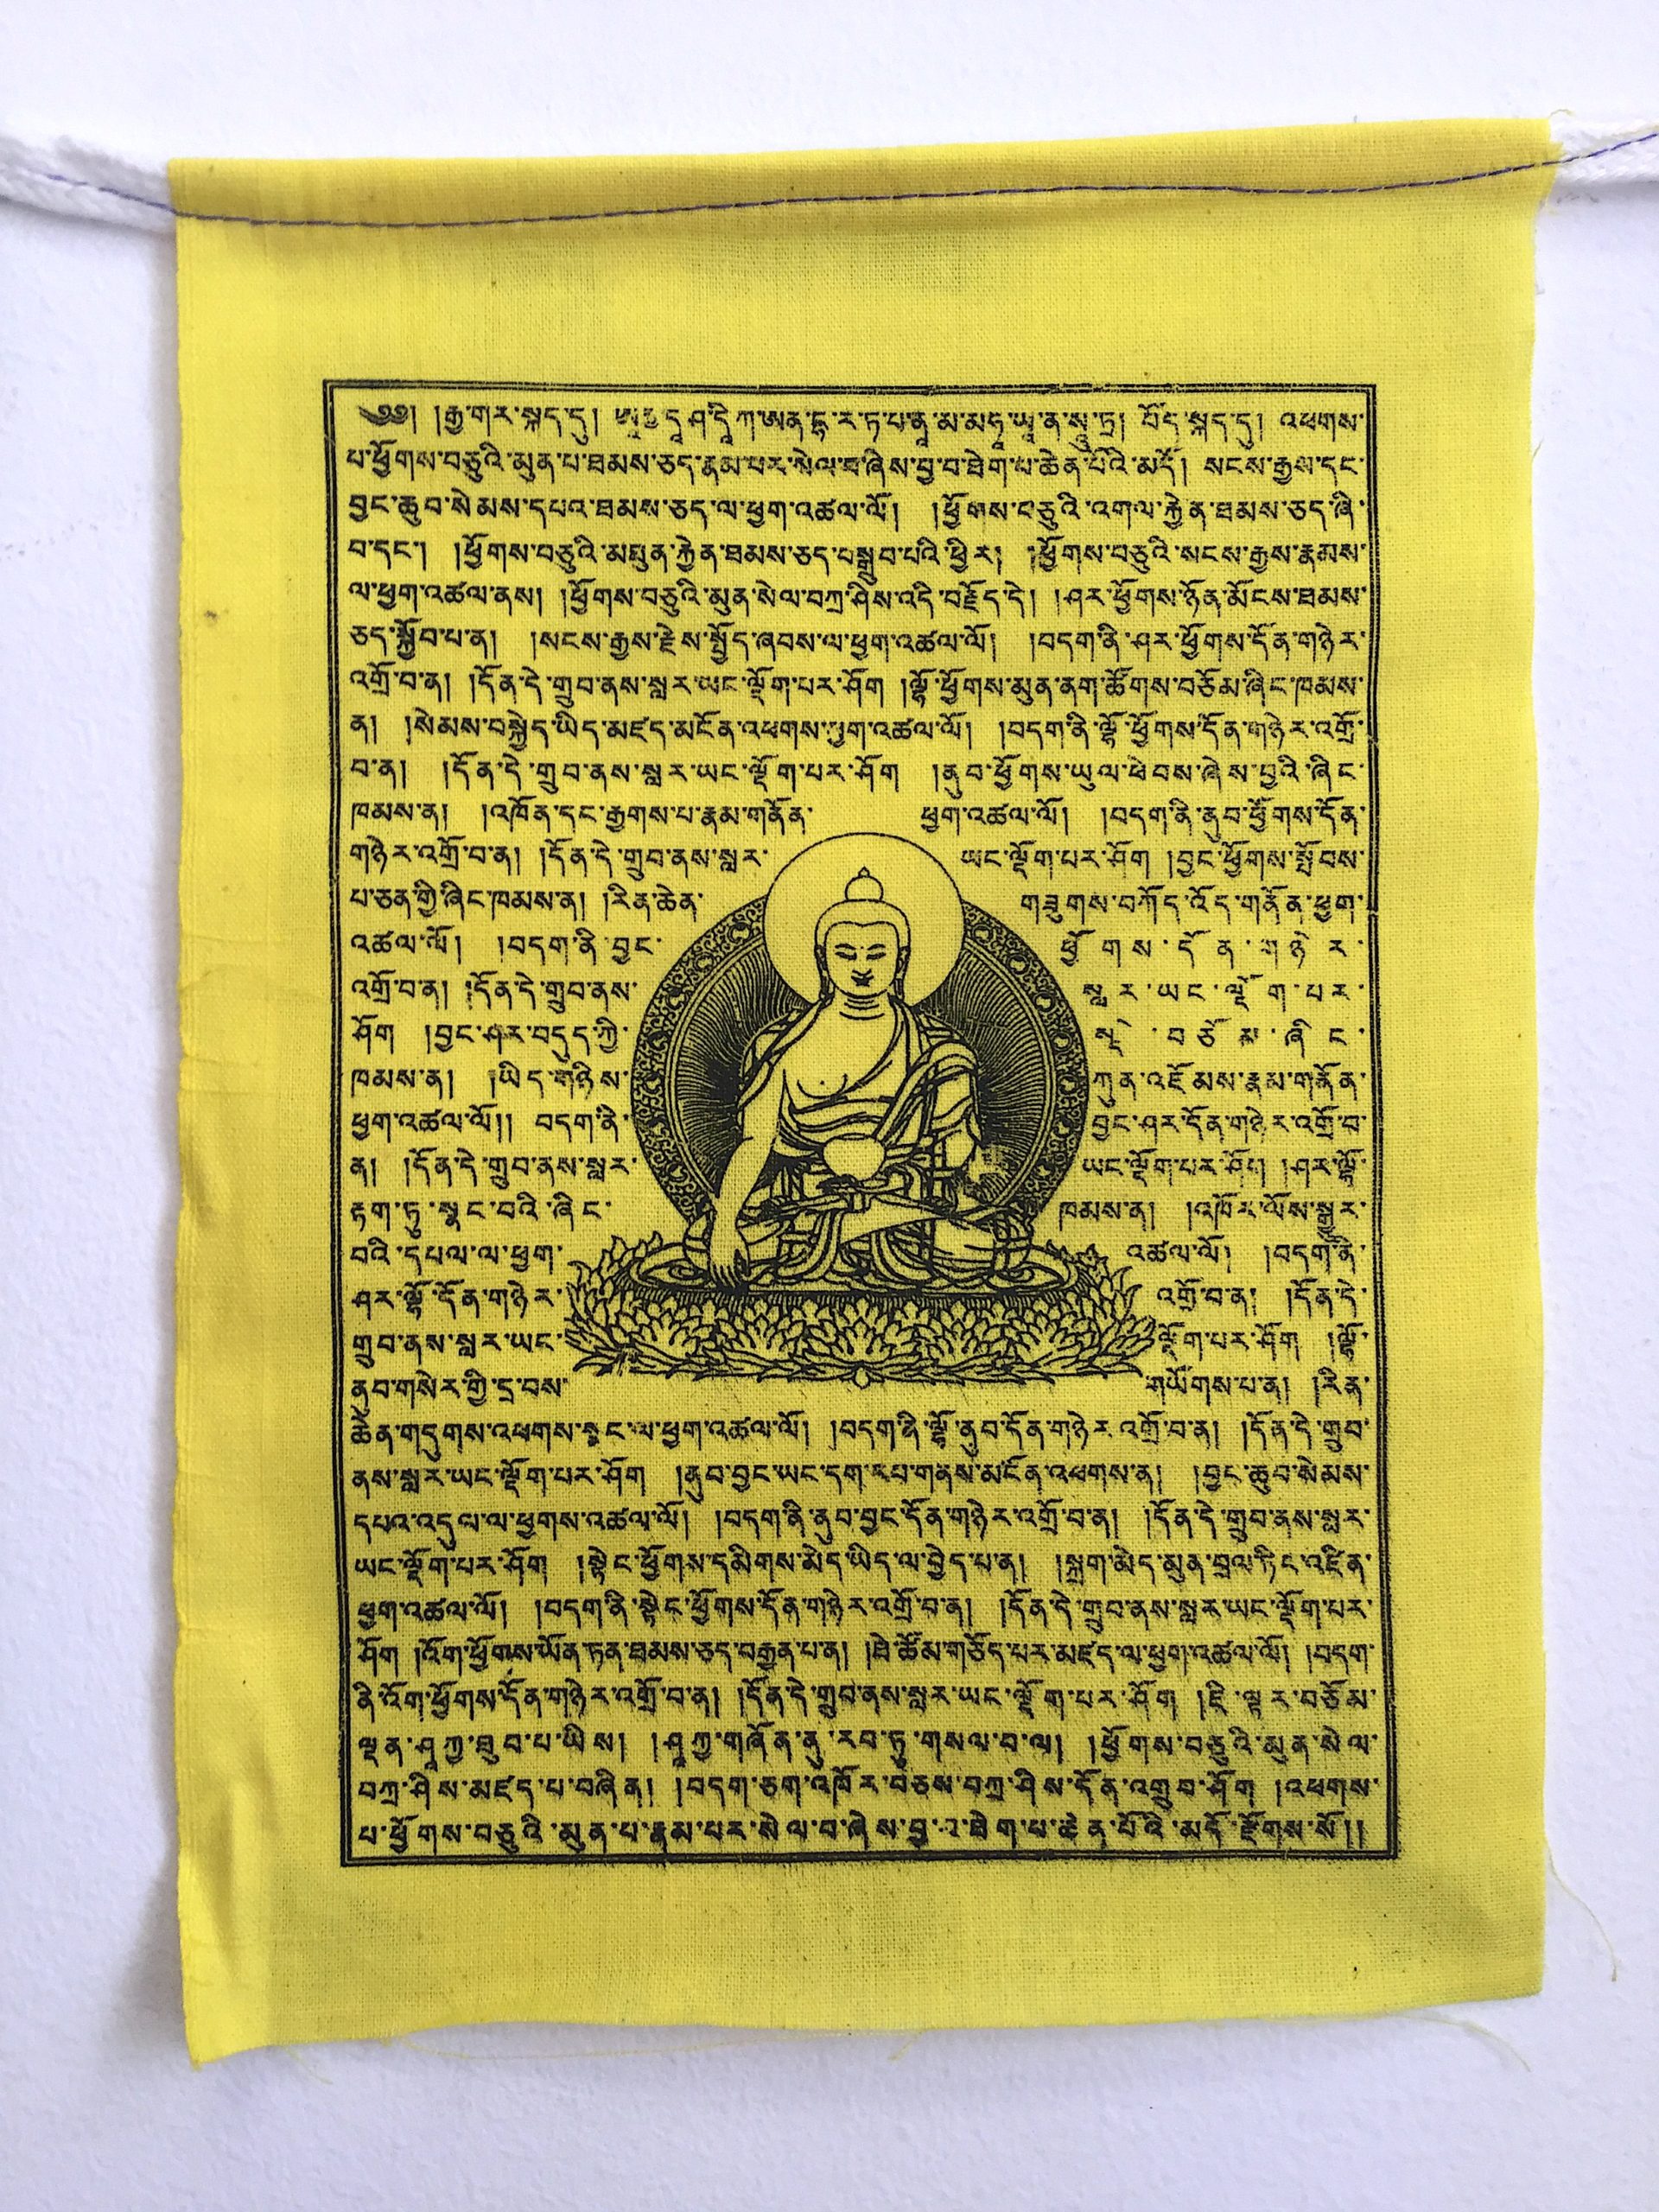 ༄༅། །རྒྱ་གར་སྐད་དུ། ཨཱརྱ་དཱ་ཤ་དཱི་ཀ་ཨན་དྷ་ར་ཏ་པ་ནཱ་མ་མ་ཧཱ་ཡཱ་ན་སཱུ་ཏྲ། བོད་སྐད་དུ། འཕགས་
པ་ཕྱོགས་བཅུའི་མུན་པ་ཐམས་ཅད་རྣམ་པར་སེལ་བ་ཞེས་བྱ་བ་ཐེག་པ་ཆེན་པོའི་མདོ། སངས་རྒྱས་དང་
བྱང་ཆུབ་སེམས་དཔའ་ཐམས་ཅད་ལ་ཕྱག་འཚལ་ལོ། །ཕྱོགས་བཅུའི་འགལ་རྐྱེན་ཐམས་ཅད་ཞི་
བ་དང་། །ཕྱོགས་བཅུའི་མཐུན་རྐྱེན་ཐམས་ཅད་བསྒྲུབ་པའི་ཕྱིར། །ཕྱོགས་བཅུའི་སངས་རྒྱས་རྣམས་
ལ་ཕྱག་འཚལ་ནས། །ཕྱོགས་བཅུའི་མུན་སེལ་བཀྲ་ཤིས་འདི་བརྗོད་དེ། །ཤར་ཕྱོགས་ཉོན་མོངས་ཐམས་
ཅད་སྐྱོབ་པ་ན། །སངས་རྒྱས་རྗེས་སྤྱོད་ཞབས་ལ་ཕྱག་འཚལ་ལོ། །བདག་ནི་ཤར་ཕྱོགས་དོན་གཉེར་
འགྲོ་བ་ན། །དོན་དེ་གྲུབ་ནས་སླར་ཡང་ལྡོག་པར་ཤོག །ལྷོ་ཕྱོགས་མུན་ནག་ཚོགས་བཅོམ་ཞིང་ཁམས་
ན། །སེམས་བསྐྱེད་ཡིད་མཛད་མངོན་འཕགས་ཕྱག་འཚལ་ལོ། །བདག་ནི་ལྷོ་ཕྱོགས་དོན་གཉེར་འགྲོ་
བ་ན། །དོན་དེ་གྲུབ་ནས་སླར་ཡང་ལྡོག་པར་ཤོག །ནུབ་ཕྱོགས་ཡུལ་ཕེབས་ཞེས་བྱའི་ཞིང་
ཁམས་ན། །འཁོན་དང་རྒྱགས་པ་རྣམ་གནོན་ ཕྱག་འཚལ་ལོ། །བདག་ནི་ནུབ་ཕྱོགས་དོན་
གཉེར་འགྲོ་བ་ན། །དོན་དེ་གྲུབ་ནས་སླར་ ཡང་ལྡོག་པར་ཤོག །བྱང་ཕྱོགས་སྤོབས་
པ་ཅན་གྱི་ཞིང་ཁམས་ན། །རིན་ཆེན་ གཟུགས་བཀོད་འོད་གནོན་ཕྱག་
འཚལ་ལོ། །བདག་ནི་བྱང་ ཕྱོགས་དོན་གཉེར་
འགྲོ་བ་ན། །དོན་དེ་གྲུབ་ནས་ སླར་ཡང་ལྡོག་པར་
ཤོག །བྱང་ཤར་བདུད་ཀྱི་ སྡེ་བཅོམ་ཞིང་
ཁམས་ན། །ཡིད་གཉིས་ ཀུན་འཇོམས་རྣམ་གནོན་
ཕྱག་འཚལ་ལོ།། བདག་ནི་ བྱང་ཤར་དོན་གཉེར་འགྲོ་བ་
ན། །དོན་དེ་གྲུབ་ནས་སླར་ ཡང་ལྡོག་པར་ཤོག །ཤར་ལྷོ་
རྟག་ཏུ་སྣང་བའི་ཞིང་ ཁམས་ན། །འཁོར་ལོས་སྒྱུར་
བའི་དཔལ་ལ་ཕྱག་ འཚལ་ལོ། །བདག་ནི་
ཤར་ལྷོ་དོན་གཉེར་ འགྲོ་བ་ན། །དོན་དེ་
གྲུབ་ནས་སླར་ཡང་ ལྡོག་པར་ཤོག །ལྷོ་
ནུབ་གསེར་གྱི་དྲ་བས་ གཡོགས་པ་ན། །རིན་
ཆེན་གདུགས་འཕགས་སྣང་ལ་ཕྱག་འཚལ་ལོ། །བདག་ནི་ལྷོ་ནུབ་དོན་གཉེར་འགྲོ་བ་ན། །དོན་དེ་གྲུབ་
ནས་སླར་ཡང་ལྡོག་པར་ཤོག །ནུབ་བྱང་ཡང་དག་རབ་གནས་མངོན་འཕགས་ན། །བྱང་ཆུབ་སེམས་
དཔའ་འདུལ་ལ་ཕྱགས་འཚལ་ལོ། །བདག་ནི་ནུབ་བྱང་དོན་གཉེར་འགྲོ་བ་ན། །དོན་དེ་གྲུབ་ནས་སླར་
ཡང་ལྡོག་པར་ཤོག །སྟེང་ཕྱོགས་དམིགས་མེད་ཡིད་ལ་བྱེད་པ་ན། །སྐྲག་མེད་མུན་བྲལ་ཏིང་འཛིན་
ཕྱག་འཚལ་ལོ། །བདག་ནི་སྟེང་ཕྱོགས་དོན་གཉེར་འགྲོ་བ་ན། །དོན་དེ་གྲུབ་ནས་སླར་ཡང་ལྡོག་པར་
ཤོག །འོག་ཕྱོགས་ཡོན་ཏན་ཐམས་ཅད་བརྒྱན་པ་ན། །ཐེ་ཚོམ་གཅོད་པར་མཛད་ལ་ཕྱག་འཚལ་ལོ། །བདག་
ནི་འོག་ཕྱོགས་དོན་གཉེར་འགྲོ་བ་ན། །དོན་དེ་གྲུབ་ནས་སླར་ཡང་ལྡོག་པར་ཤོག །ཇི་ལྟར་བཅོམ་
ལྡན་ཤཱཀྱ་ཐུབ་པ་ཡིས། །ཤཱཀྱ་གཞོན་ནུ་རབ་ཏུ་གསལ་བ་ལ། །ཕྱོགས་བཅུའི་མུན་སེལ་
བཀྲ་ཤིས་མཛད་པ་བཞིན། །བདག་ཅག་འཁོར་བཅས་བཀྲ་ཤིས་དོན་འགྲུབ་ཤོག །འཕགས་
པ་ཕྱོགས་བཅུའི་མུན་པ་རྣམ་པར་སེལ་བ་ཞེས་བྱ་བ་ཐེག་པ་ཆེན་པོའི་མདོ་རྫོགས་སོ།།